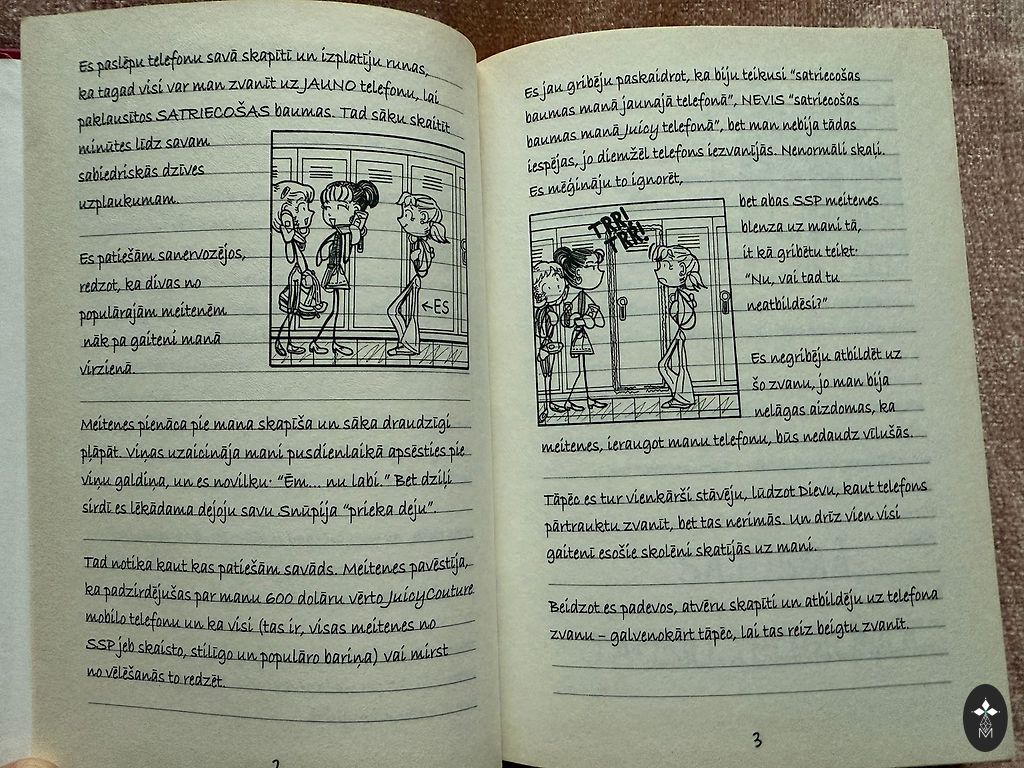 Es paslēpu telefonu savā skapītī un izplatīju runas,
ka tagad visi var man zvanīt uz JAUNO telefonu, lai
paklausītos SATRIECOŠAS baumas. Tad sāku skaitīt
minūtes līdz savam
sabiedriskās dzīves
uzplaukumam.
Es patiešām sanervozējos,
redzot, ka divas no
populārajām meitenēm
nāk pa gaiteni manā
virzienā.
←ES
Meitenes pienāca pie mana skapīša un sāka draudzīgi
pļāpāt. Viņas uzaicināja mani pusdienlaikā apsēsties pie
viņu galdiņa, un es novilku: "Ēm... nu labi." Bet dziļi
sirdī es lēkādama dejoju savu Snūpija "prieka deju".
Tad notika kaut kas patiešām savāds. Meitenes pavēstīja,
ka padzirdējušas par manu 600 dolāru vērto Juicy Couture
mobilo telefonu un ka visi (tas ir, visas meitenes no
SSP jeb skaisto, stilīgo un populāro bariņa) vai mirst
no vēlēšanās to redzēt.
2
Es jau gribēju paskaidrot, ka biju teikusi "satriecošas
baumas manā jaunajā telefonā", NEVIS "satriecošas
baumas manā Juicy telefonā", bet man nebija tādas
iespējas, jo diemžēl telefons iezvanījās. Nenormāli skaļi.
Es mēģināju to ignorēt,
bet abas SSP meitenes
blenza uz mani tā,
it kā gribētu teikt:
"Nu, vai tad tu
neatbildēsi?"
TRR!
TRR!
Es negribēju atbildēt uz
šo zvanu, jo man bija
nelāgas aizdomas, ka
meitenes, ieraugot manu telefonu, būs nedaudz vīlušās.
Tāpēc es tur vienkārši stāvēju, lūdzot Dievu, kaut telefons
pārtrauktu zvanīt, bet tas nerimās. Un drīz vien visi
gaitenī esošie skolēni skatījās uz mani.
Beidzot es padevos, atvēru skapīti un atbildēju uz telefona
zvanu – galvenokārt tāpēc, lai tas reiz beigtu zvanīt.
3
M